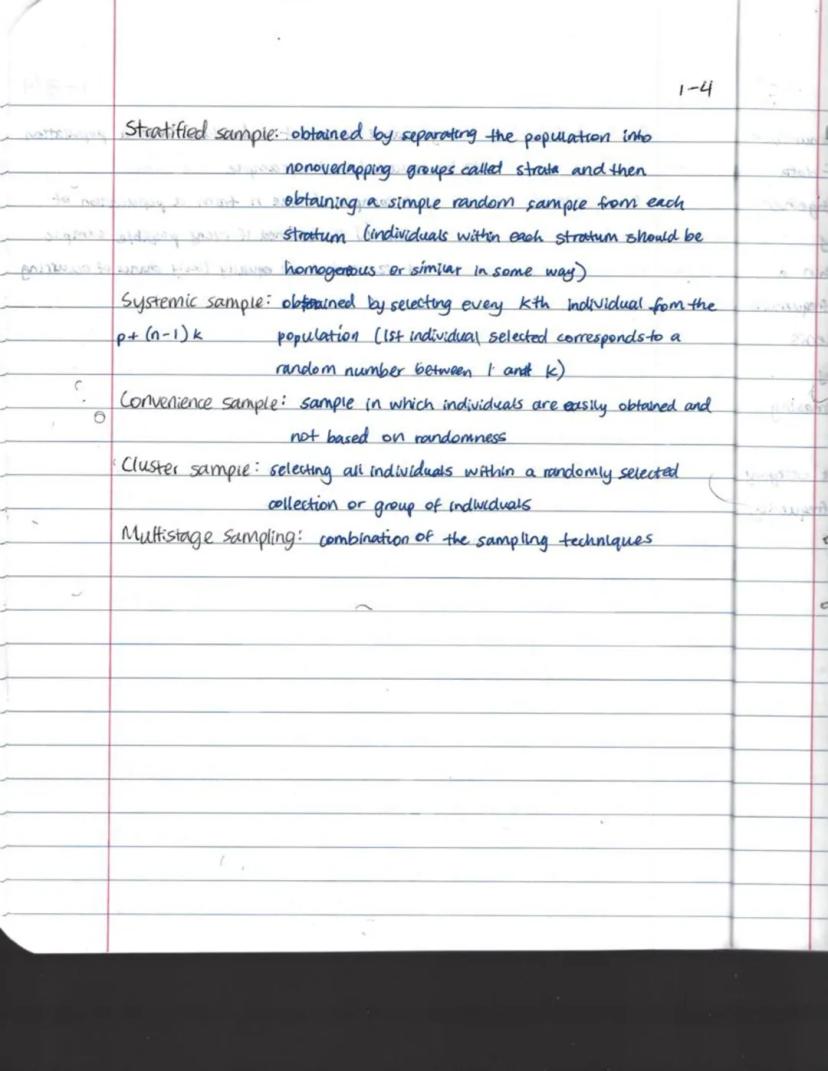 1-4
Stratified sample: obtained by separating the population into
nonoverlapping groups called strata and then
obtaining a simple random sample from each
stratum (individuals within each stratum should be
homogenous or similar in some way)
Systemic sample: obtained by selecting every kth individual fom the
p+(n-1)k population (1st individual selected corresponds to a
random number between 1 and k)
Convenience sample: sample in which individuals are easily obtained and
not based on randomness
Cluster sample: selecting all individuals within a randomly selected
collection or group of individuals
Multistage sampling: combination of the sampling techniques